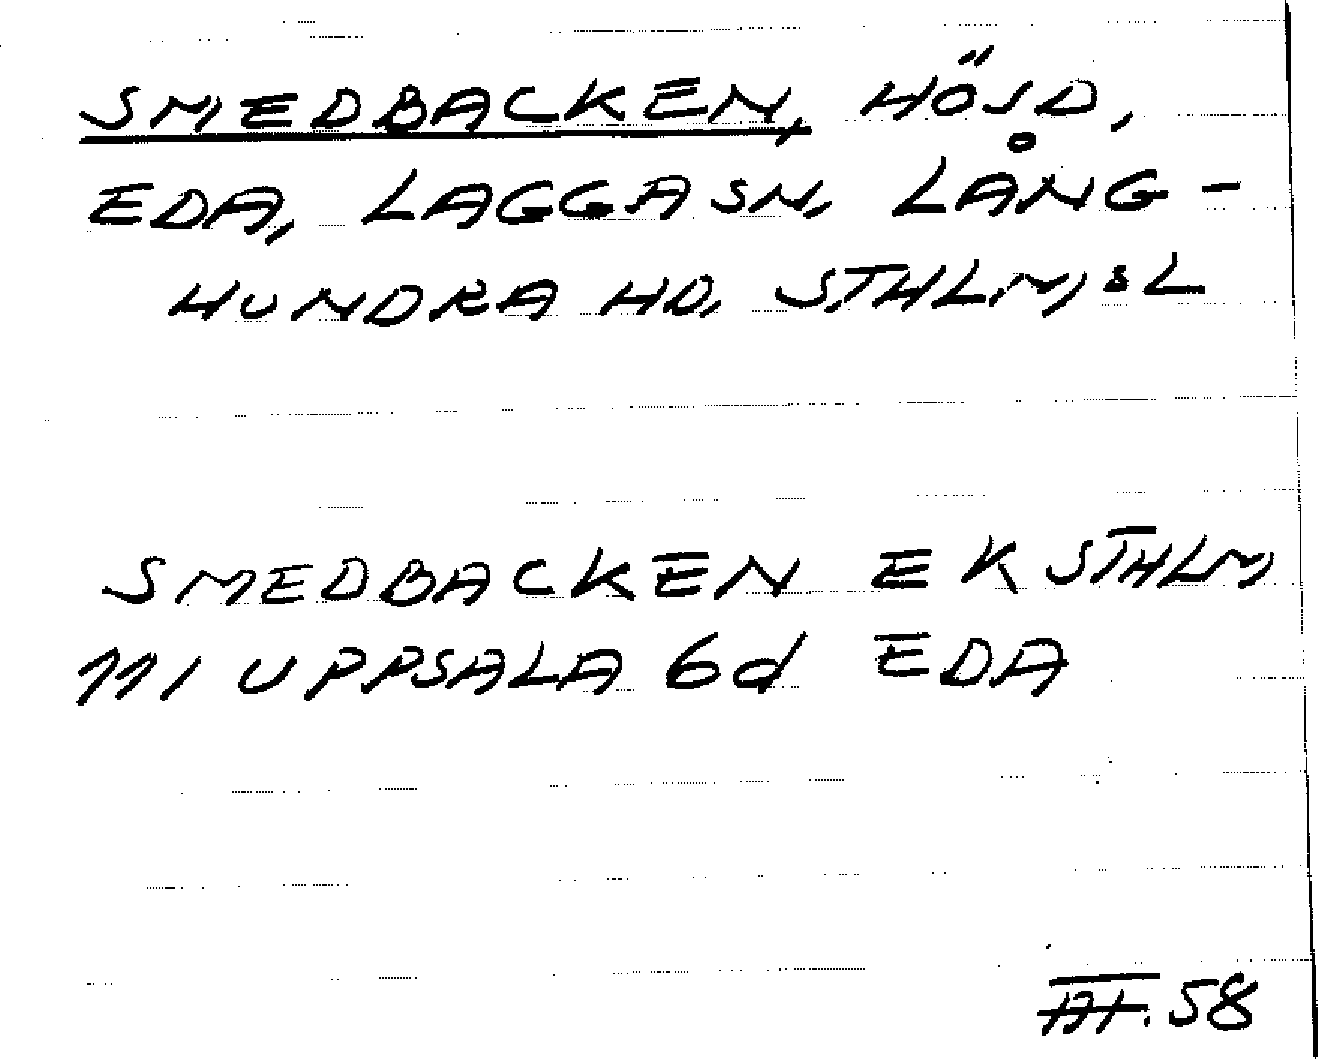 SMEDBACKEN, HÖJD,
EDA, LAGGA SN, LÅNG-
HUNDRA HD, STHLM,S L
SMEDBACKEN EK STHLM
111 UPPSALA 6d EDA
58